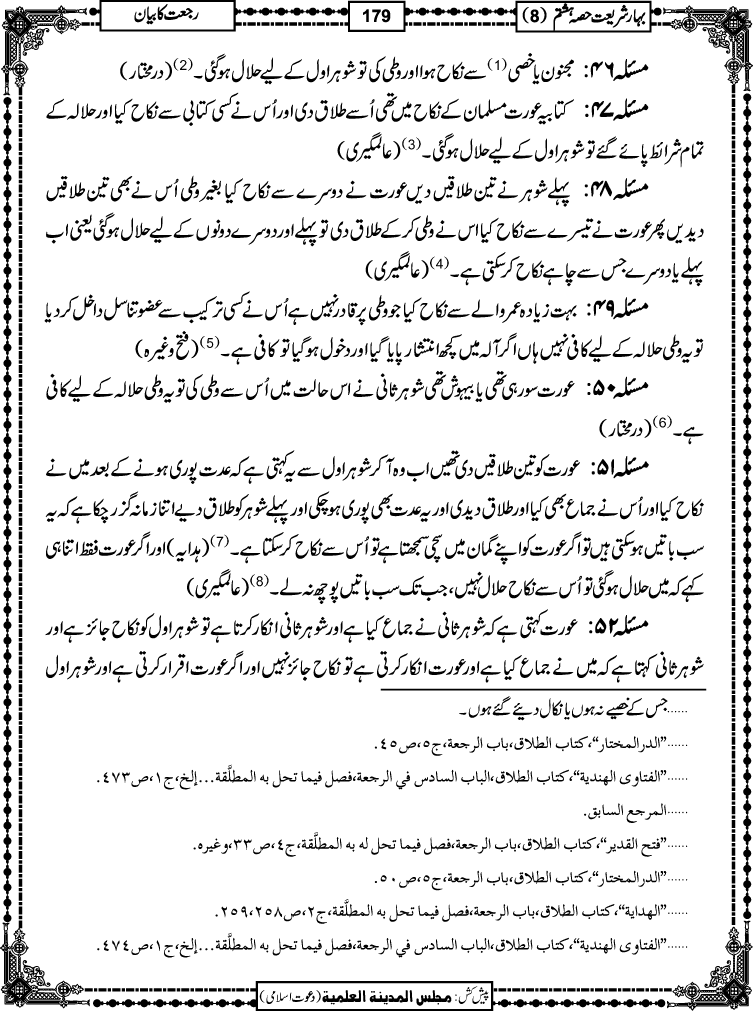 بہار شریعت حصہ ہشتم (8)
179
رجعت کا بیان
مسئلہ ۴۶: مجنون یا خصی (1) سے نکاح ہوا اور وطی کی تو شوہر اول کے لیے حلال ہوگئی۔ (2) (درمختار)
مسئلہ ۴۷: کتابیہ عورت مسلمان کے نکاح میں تھی اُسے طلاق دی اور اُس نے کسی کتابی سے نکاح کیا اور حلالہ کے
تمام شرائط پائے گئے تو شوہر اول کے لیے حلال ہوگئی۔ (3) (عالمگیری)
مسئلہ ۴۸: پہلے شوہر نے تین طلاقیں دیں عورت نے دوسرے سے نکاح کیا بغیر وطی اُس نے بھی تین طلاقیں
دیدیں پھر عورت نے تیسرے سے نکاح کیا اس نے وطی کرکے طلاق دی تو پہلے اور دوسرے دونوں کے لیے حلال ہوگئی یعنی اب
پہلے یا دوسرے جس سے چاہے نکاح کرسکتی ہے۔ (4) (عالمگیری)
مسئلہ ۴۹: بہت زیادہ عمر والے سے نکاح کیا جو وطی پر قادر نہیں ہے اُس نے کسی ترکیب سے عضو تناسل داخل کردیا
تو یہ وطی حلالہ کے لیے کافی نہیں ہاں اگر آلہ میں کچھ انتشار پایا گیا اور دخول ہوگیا تو کافی ہے۔ (5) (فتح وغیرہ)
مسئلہ ۵۰: عورت سو رہی تھی یا بیہوش تھی شوہر ثانی نے اس حالت میں اُس سے وطی کی تو یہ وطی حلالہ کے لیے کافی
ہے۔ (6) (درمختار)
مسئلہ ۵۱: عورت کو تین طلاقیں دی تھیں اب وہ آکر شوہر اول سے یہ کہتی ہے کہ عدت پوری ہونے کے بعد میں نے
نکاح کیا اور اُس نے جماع بھی کیا اور طلاق دیدی اور یہ عدت بھی پوری ہوچکی اور پہلے شوہر کو طلاق دیے اتنا زمانہ گزر چکا ہے کہ یہ
سب باتیں ہوسکتی ہیں تو اگر عورت کو اپنے گمان میں سچی سمجھتا ہے تو اُس سے نکاح کرسکتا ہے۔ (7) (ہدایہ) اور اگر عورت فقط اتنا ہی
کہے کہ میں حلال ہوگئی تو اُس سے نکاح حلال نہیں، جب تک سب باتیں پوچھ نہ لے۔ (8) (عالمگیری)
مسئلہ ۵۲: عورت کہتی ہے کہ شوہر ثانی نے جماع کیا ہے اور شوہر ثانی انکار کرتا ہے تو شوہر اول کو نکاح جائز ہے اور
شوہر ثانی کہتا ہے کہ میں نے جماع کیا ہے اور عورت انکار کرتی ہے تو نکاح جائز نہیں اور اگر عورت اقرار کرتی ہے اور شوہر اول
......جس کے خصیے نہ ہوں یا نکال دیئے گئے ہوں۔
......"الدرالمختار"،کتاب الطلاق،باب الرجعة،ج٥،ص٤٥.
......"الفتاوى الهندية"،كتاب الطلاق،الباب السادس في الرجعة،فصل فيما تحل به المطلَّقة...إلخ،ج١،ص٤٧٣.
......المرجع السابق.
......"فتح القدير"،كتاب الطلاق،باب الرجعة،فصل فيما تحل له به المطلَّقة،ج٤،ص٣٣،وغيره.
......"الدرالمختار"،كتاب الطلاق،باب الرجعة،ج٥،ص٥٠.
......"الهداية"،كتاب الطلاق،باب الرجعة،فصل فيما تحل به المطلَّقة،ج٢،ص٢٥٨،٢٥٩.
......"الفتاوى الهندية"،كتاب الطلاق،الباب السادس في الرجعة،فصل فيما تحل به المطلَّقة...إلخ،ج١،ص٤٧٤.
پیش کش: مجلس المدينة العلمية (دعوت اسلامی)